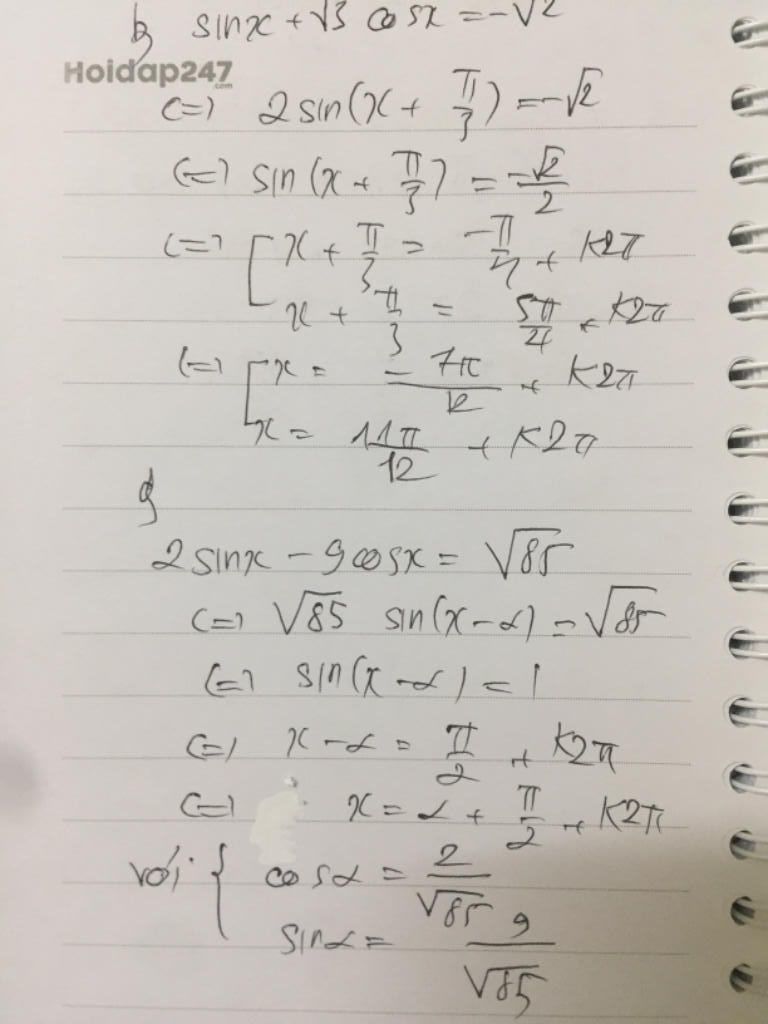 b, sinx + √3 cosx = -√2
Hoidap247
.com
(=) 2sin(x + π/3) = -√2
(=) sin(x + π/3) = -√2/2
(=) [ x + π/3 = -π/4 + K2π
x + π/3 = 5π/4 + K2π
(=) [ x = -7π/12 + K2π
x = 11π/12 + K2π
2sinx - 9cosx = √85
(=) √85 sin(x-α) = √85
(=) sin(x-α) = 1
(=) x-α = π/2 + K2π
(=) x = α + π/2 + K2π
với { cosα = 2/√85
sinα = 9/√85